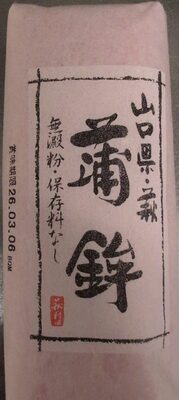 山口県・萩
蒲鉾
無澱粉・保存料なし
賞味期限 26.03.06 BQM